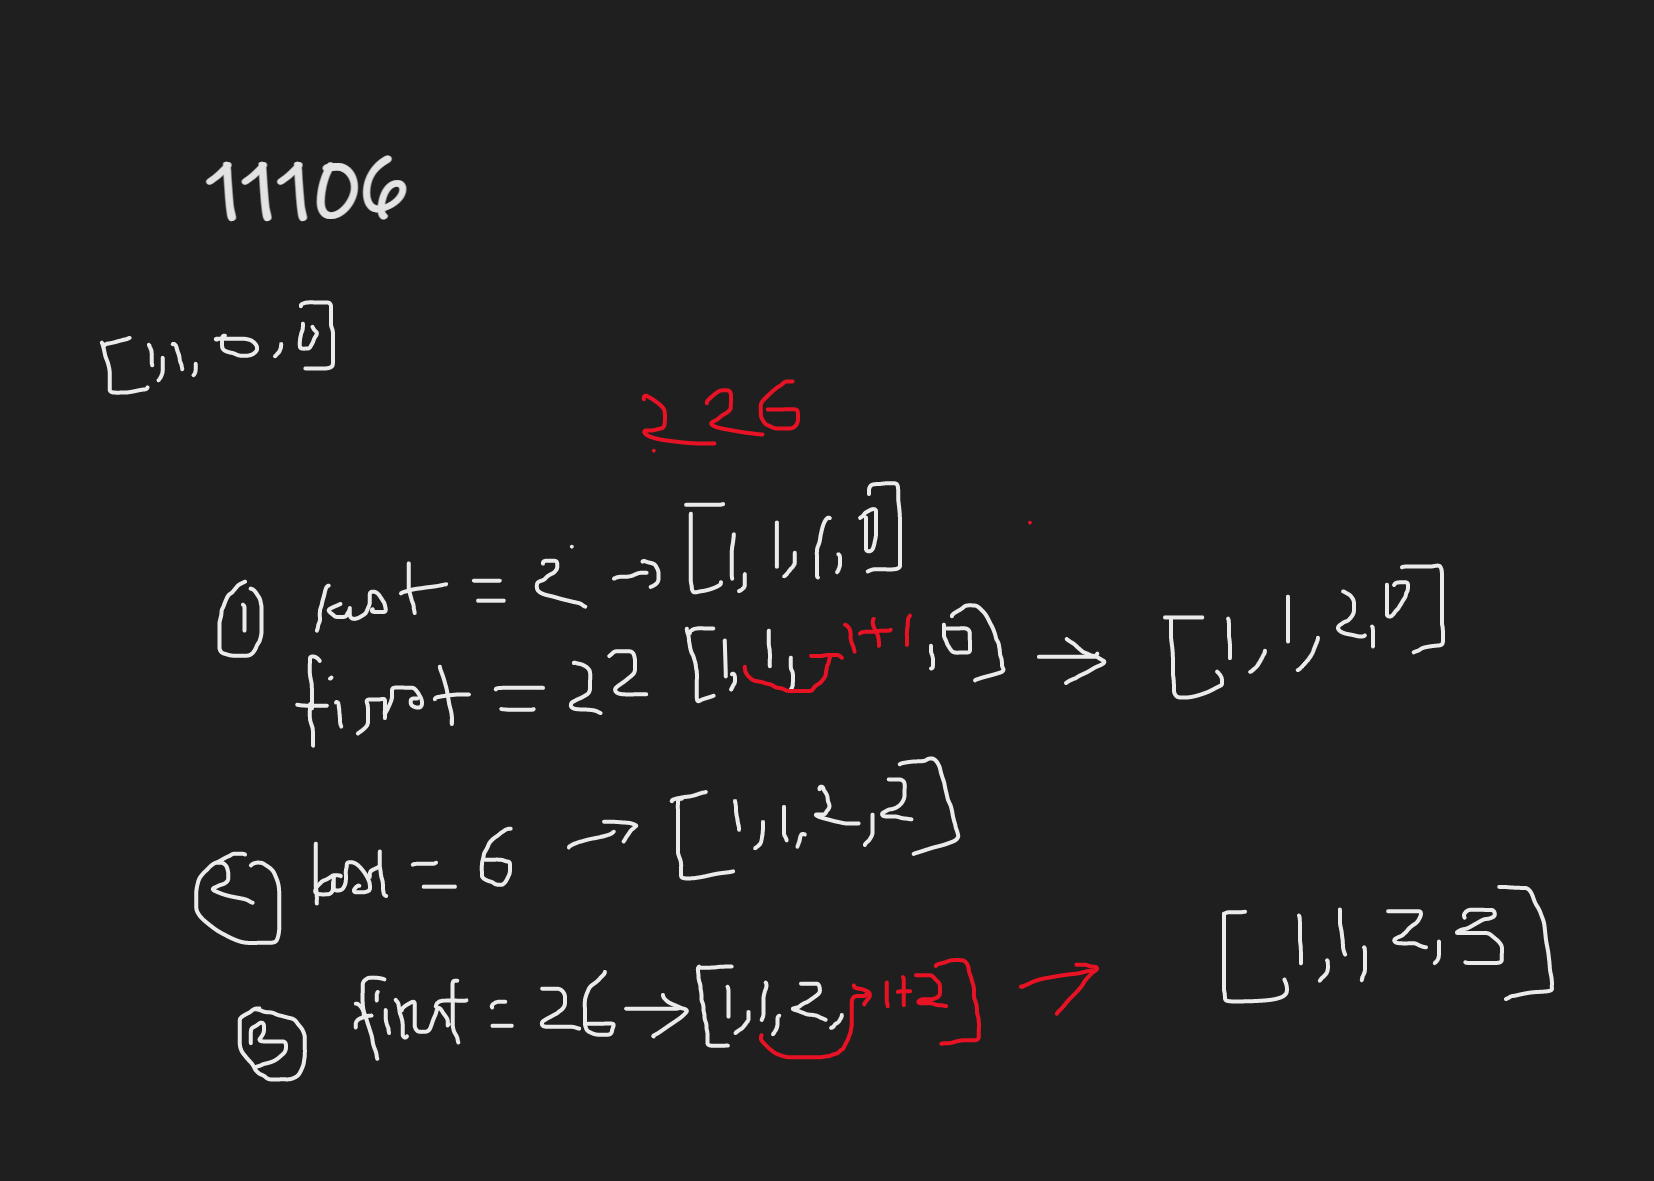 11106
[1,1,0,0]
226
① last = 2 → [1,1,1,0]
first = 22 [1,1,1+1,0] → [1,1,2,0]
② last = 6 → [1,1,2,2]
③ first = 26 → [1,1,2,1+2] → [1,1,2,3]